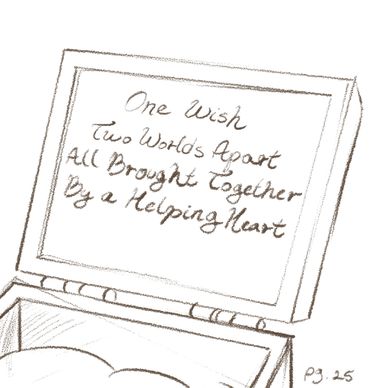 One Wish
Two Worlds Apart
All Brought Together
By a Helping Heart
pg. 25